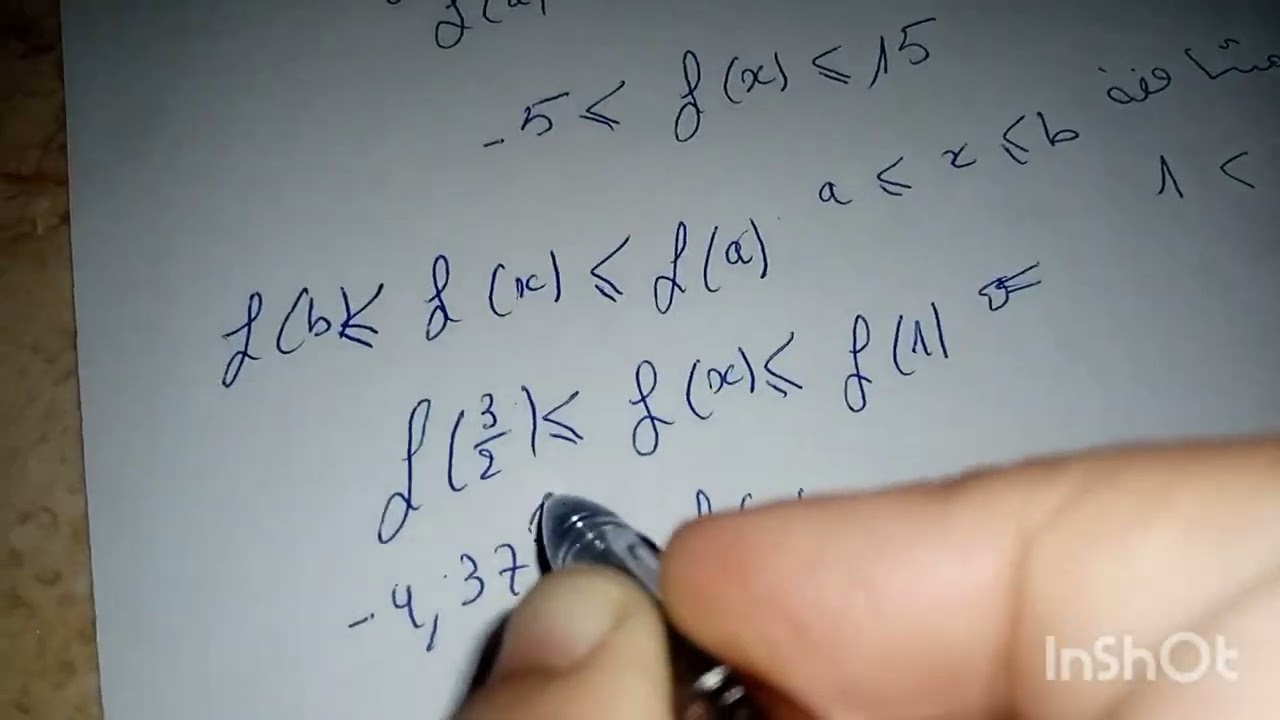 f(a)
-5 ≤ f(x) ≤ 15
a ≤ x ≤ b
1 <
f(b) ≤ f(x) ≤ f(a)
f(3/2) ≤ f(x) ≤ f(1)
-4,37
InShOt